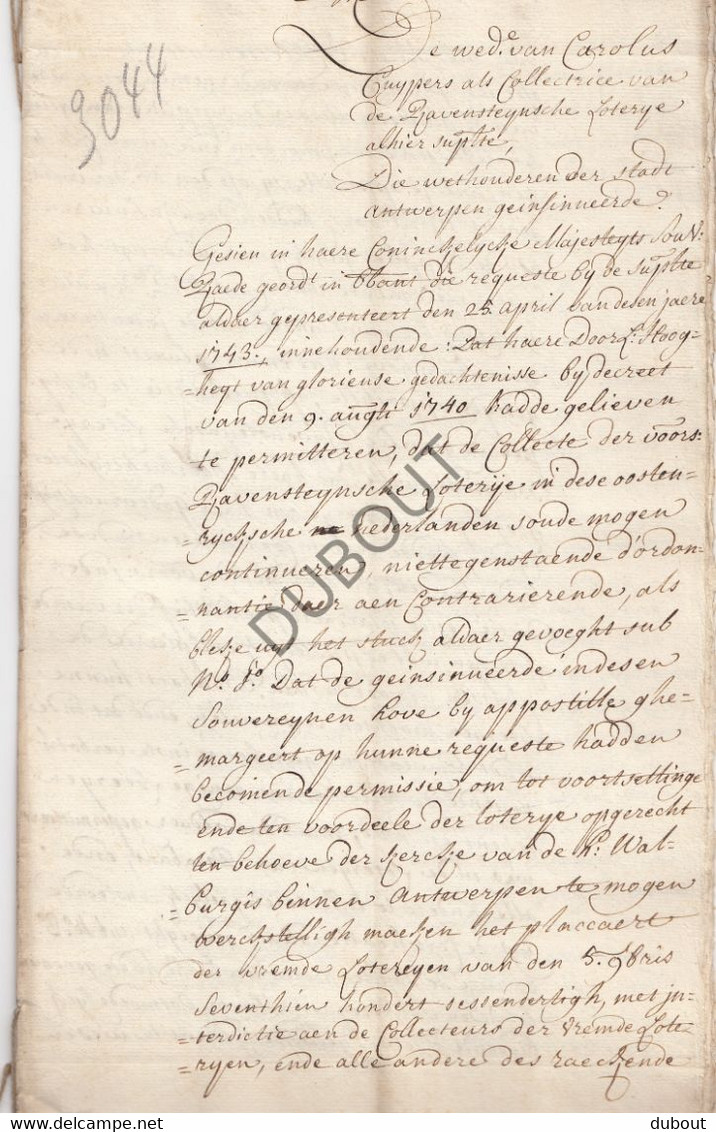 3044
De wed:e van Carolus
Cuypers als Collectrice van
de Ravensteynsche Loterye
alhier suplte,
Die wethouderen der stadt
Antwerpen geinsinueerde.
Gesien in haere Coninckelycke Majesteyts Souv:
Raede geordt in Brabant die requeste by de suplte
aldaer gepresenteert den 25 april van desen jaere
1743., innehoudende: Dat haere Doorl: Hoog-
=heyt van glorieuse gedachtenisse by decreet
van den 9. augti 1740 hadde gelieven
te permitteren, dat de Collecte der voors:
Ravensteynsche Loterije in dese oosten-
=rycksche nederlanden soude mogen
continueren, niettegenstaende d'ordon-
=nantie daer aen Contrarierende, als
bleke uyt het stuck aldaer gevoeght sub
No. 1o. Dat de geinsinueerde in desen
Souvereynen hove by appostille ghe-
=margeert op hunne requeste hadden
becomende permissie, om tot voortsettinge
ende ten voordeele der loterye opgerecht
ten behoeve der kercke van de H: Wal-
=burgis binnen Antwerpen te mogen
werckstelligh maeken het placcaert
der vremde Lotereyen van den 5. 9bris
Seventhien hondert sessendertigh, met in-
=terdictie aen de Collecteurs der vremde Lote-
=ryen, ende alle andere des raeckende
DUBOUT
delcampe.net
dubout